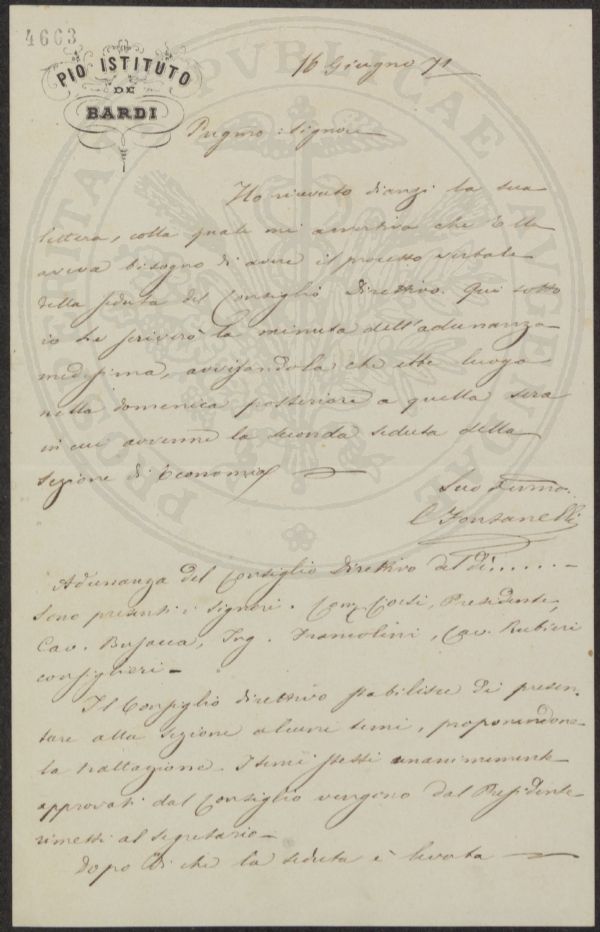 4603
PIO ISTITUTO
DE
BARDI
16 Giugno 71
Pregmo: Signore
Ho ricevuto dianzi la sua
lettera, colla quale mi avvertiva che Ella
aveva bisogno di avere il processo verbale
della seduta del Consiglio Direttivo. Qui sotto
io Le scriverò la minuta dell'adunanza
medesima, avvisandola che ebbe luogo
nella domenica posteriore a quella sera
in cui avvenne la seconda seduta della
Sezione di Economia
Suo Devmo.
C Fontanelli
Adunanza del Consiglio Direttivo del dì......
Sono presenti i Signori. Com. Corsi, Presidente,
Cav. Busacca, Ing. Francolini, Cav. Rubieri
consiglieri
Il Consiglio direttivo stabilisce di presen
tare alla Sezione alcuni temi, proponendone
la trattazione. I temi stessi unanimemente
approvati dal Consiglio vengono dal Presidente
rimessi al segretario
Dopo di che la seduta è levata
PROSPERITATI PUBLICAE AUGENDAE